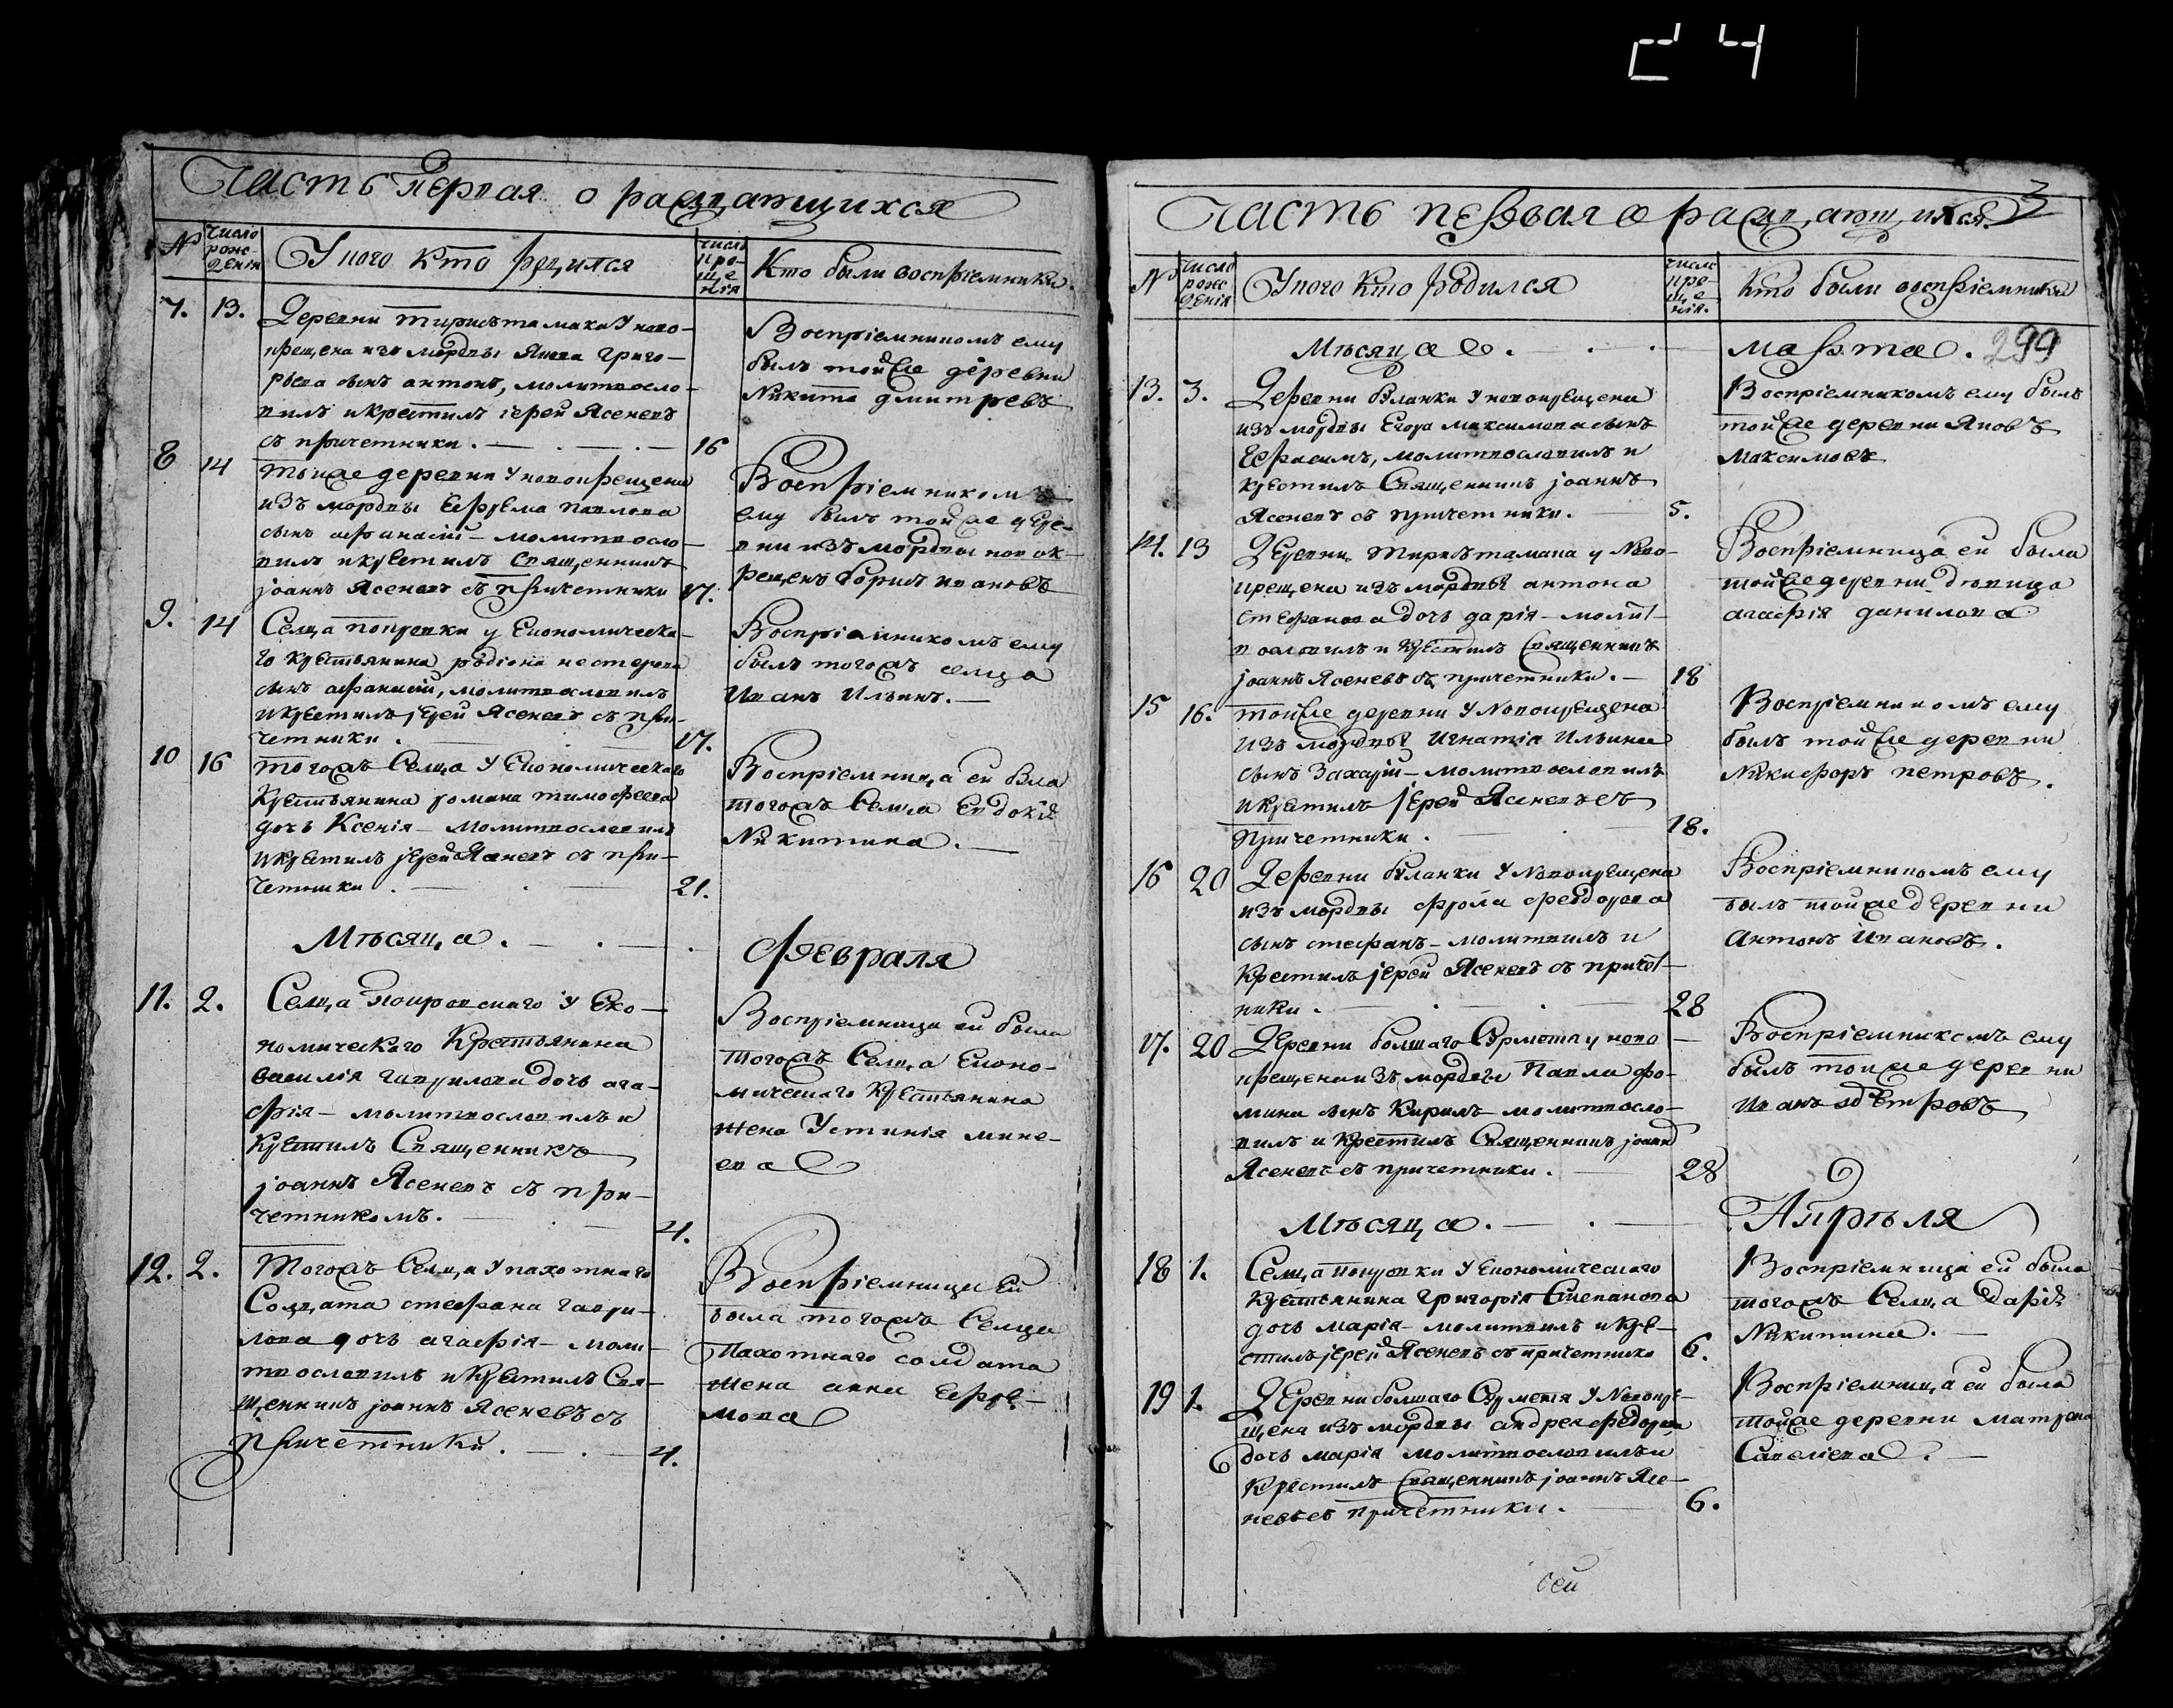 24
Часть первая о раждающихся
№
число рождения
У ного кто родился
число креще-нія
Кто были воспріемники.
7. 13.
Деревни Тиристамака У ново-
крещена изъ мордвы Якова Григо-
рьева сынъ антонъ, молитвосло-
вилъ и крестилъ іерей Ясеневъ
съ причетники. 16
Воспріемникомъ ему
былъ тойже деревни
Никита дмитревъ
8 14
тоиже деревни У новокрещена
изъ мордвы Ефрема павлова
сынъ афанасій - молитвосло-
вилъ и крестилъ Священникъ
іоаннъ Ясеневъ съ причетники 17.
Воспріемникомъ
ему былъ тойже дере-
вни изъ мордвы новок-
рещенъ борисъ ивановъ
9. 14
Селца покровки у Економическа-
го крестьянина родіона нестерова
сынъ афанасій, молитвословилъ
и крестилъ іерей Ясеневъ съ при-
четники. 17.
Воспріемникомъ ему
былъ тогожъ селца
Иванъ Ильинъ.
10 16
тогожъ Селца У Економическаго
Крестьянина романа тимофеева
дочь Ксенія - молитвословилъ
и крестилъ іерей Ясеневъ съ при-
четники. 21.
Воспріемница ей была
тогожъ Селца Евдокія
Никитина.
Мѣсяца. Февраля
11. 2.
Селца Покровскаго У Еко-
номическаго Крестьянина
василія гаврилова дочь ага-
фія - молитвословилъ и
Крестилъ Священникъ
іоаннъ Ясеневъ съ при-
четникомъ. 4.
Воспріемница ей была
тогожъ Селца Еконо-
мическаго Крестьянина
жена Устинія мине-
ева
12. 2.
Тогожъ Селца У пахотнаго
Солдата стефана гаври-
лова дочь агафія - моли-
твословилъ и Крестилъ Свя-
щенникъ іоаннъ Ясеневъ съ
причетники. 4.
Воспріемница Ей
была тогожъ Селца
Пахотнаго солдата
жена анна Ефре-
мова
Часть первая о раждающихся 3
№
число рождения
У ного кто родился
число креще-нія.
Кто были воспріемники
Мѣсяца. марта. 299
13. 3.
Деревни буланки У новокрещена
изъ мордвы Егора максимова сынъ
Герасимъ, молитвословилъ и
крестилъ Священникъ іоаннъ
Ясеневъ съ причетники. 5.
Воспріемникомъ ему былъ
тойже деревни Яковъ
Максимовъ
14. 13
Деревни Тиристамака у Ново-
крещена изъ мордвы антона
стефанова дочь дарія - молит-
вословилъ и крестилъ Священникъ
іоаннъ Ясеневъ съ причетники. 18
Воспріемница ей была
тойже деревни дѣвица
агафія данилова
15 16.
тойже деревни У Новокрещена
Изъ мордвы Игнатія Ильина
сынъ Захарій - молитвословилъ
и крестилъ іерей Ясеневъ съ
причетники. 18.
Воспріемникомъ ему
былъ тойже деревни
Никифоръ петровъ.
16 20
Деревни буланки У Новокрещена
изъ мордвы фрола феодорова
сынъ стефанъ - молитвилъ и
крестилъ іерей Ясеневъ съ причет-
ники. 28
Воспріемникомъ ему
былъ тойже деревни
Антонъ Ивановъ.
17. 20
Деревни болшаго Сурмета у ново-
крещена изъ мордвы Павла фо-
мина сынъ Кирилъ - молитвосло-
вилъ и крестилъ Священникъ іоаннъ
Ясеневъ съ причетники. 28
Воспріемникомъ ему
былъ тойже деревни
Иванъ петровъ
Мѣсяца. Апрѣля
18 1.
Селца покровки У Економическаго
Крестьянина григорія Степанова
дочь марія - молитвилъ и кре-
стилъ іерей Ясеневъ съ причетники 6.
Воспріемница ей была
тогожъ Селца Дарія
Никитина.
19 1.
Деревни болшаго Сурметя У Новокре-
щена изъ мордвы андрея федорова
дочь марія молитвословилъ и
Крестилъ Священникъ іоаннъ Ясе-
невъ съ причетники. 6.
Воспріемница ей была
тойже деревни матрена
Савеліева.
сей